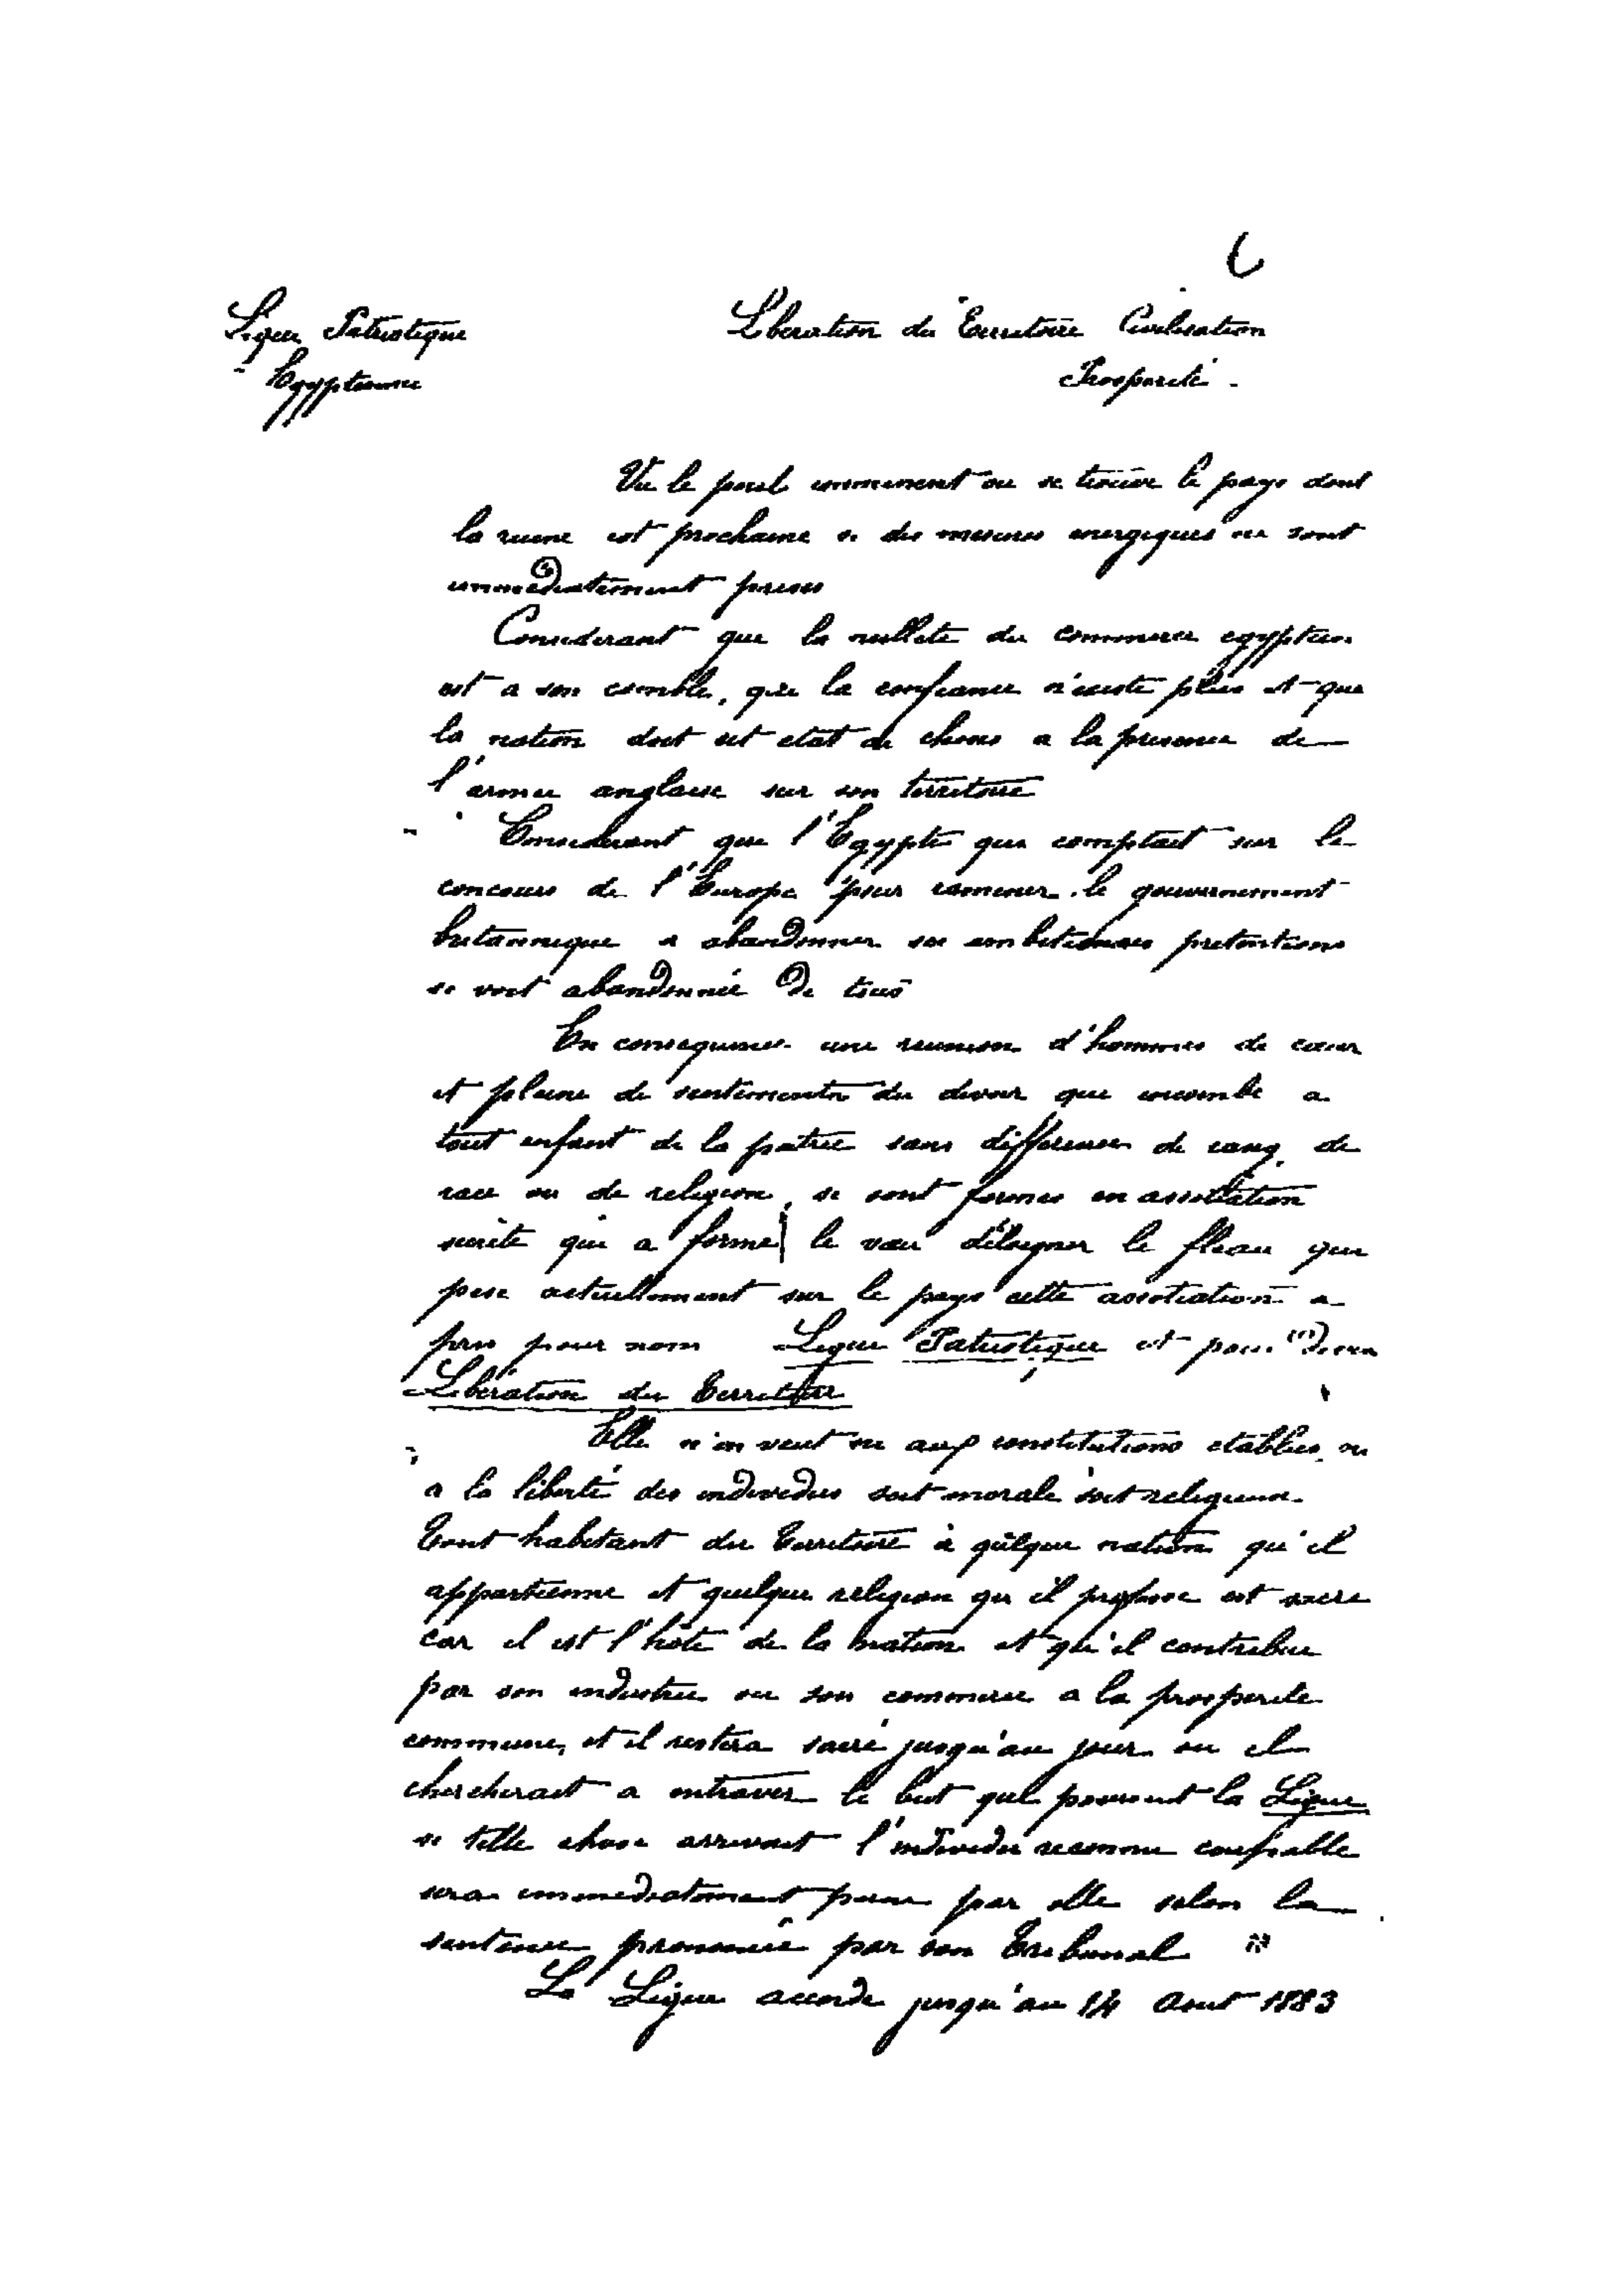 Ligue Patriotique
Egyptienne
Libération du Territoire Civilisation
Prosperité -
Vu le peril imminent ou se trouve le pays dont
la ruine est prochaine si des mesures energiques ne sont
immediatement prises
Considerant que la nullité du commerce egyptien
est a son comble, que la confiance n'existe plus et que
la nation doit cet etat de choses a la presence de
l'armee anglaise sur son territoire
Considerant que l'Egypte qui comptait sur le
concours de l'Europe pour ramener le gouvernement
britannique a abandonner ses ambitieuses pretentions
se voit abandonnée de tous
En consequence une reunion d'hommes de cœur
et pleins de sentiments du devoir qui incombe a
tout enfant de la patrie sans difference de rang, de
race ou de religion, se sont formes en assotiation
secrète qui a formé le vœu d'éloigner le fleau qui
pese actuellement sur le pays cette assotiation a
pris pour nom Ligue Patriotique et pour
Libération du Territoire
Elle n'en veut ni aux constitutions etablies, ni
a la liberté des individus soit morale soit religieuse.
Tout habitant du Territoire à quelque nation qu'il
appartienne et quelque religion qu'il professe est sacre
car il est l'hôte de la nation et qu'il contribue
par son industrie ou son commerce a la prosperite
commune, et il restera sacré jusqu'au jour ou il
chercherait a entraver le but que poursuit la Ligue
si telle chose arrivait l'individu reconnu coupable
sera immediatement puni par elle selon la
sentence prononcée par son Tribunal
La Ligue accorde jusqu'au 14 Aout 1883